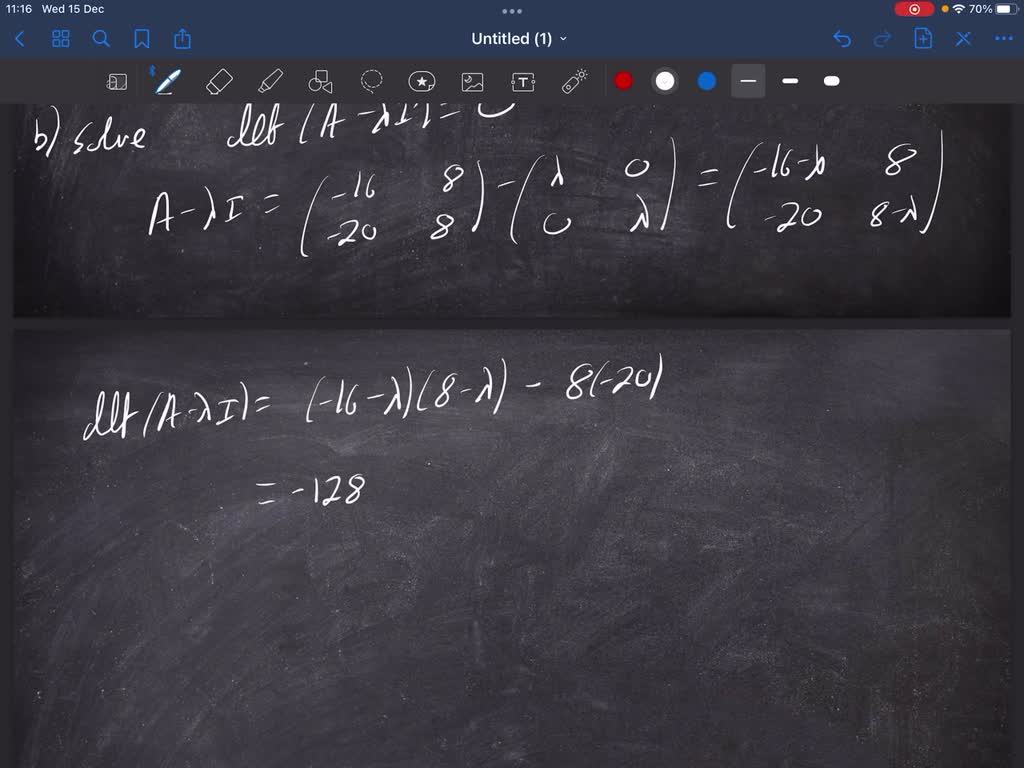 11:16 Wed 15 Dec
70%
Untitled (1)
T
b) solve det (A-λI) = 0
A-λI = (-16 8) - (λ 0) = (-16-λ 8)
(-20 8) (0 λ) (-20 8-λ)
det (A-λI) = (-16-λ)(8-λ) - 8(-20)
= -128